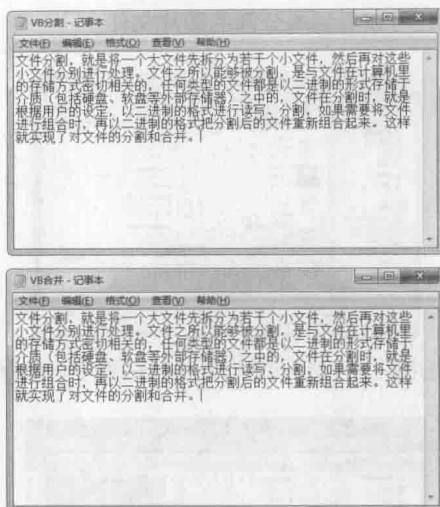 VB分割 - 记事本
文件(F) 编辑(E) 格式(O) 查看(V) 帮助(H)
文件分割，就是将一个大文件先拆分为若干个小文件，然后再对这些
小文件分别进行处理。文件之所以能够被分割，是与文件在计算机里
的存储方式密切相关的，任何类型的文件都是以二进制的形式存储于
介质（包括硬盘、软盘等外部存储器）之中的，文件在分割时，就是
根据用户的设定，以二进制的格式进行读写、分割，如果需要将文件
进行组合时，再以二进制的格式把分割后的文件重新组合起来。这样
就实现了对文件的分割和合并。
VB合并 - 记事本
文件(F) 编辑(E) 格式(O) 查看(V) 帮助(H)
文件分割，就是将一个大文件先拆分为若干个小文件，然后再对这些
小文件分别进行处理。文件之所以能够被分割，是与文件在计算机里
的存储方式密切相关的，任何类型的文件都是以二进制的形式存储于
介质（包括硬盘、软盘等外部存储器）之中的，文件在分割时，就是
根据用户的设定，以二进制的格式进行读写、分割，如果需要将文件
进行组合时，再以二进制的格式把分割后的文件重新组合起来。这样
就实现了对文件的分割和合并。